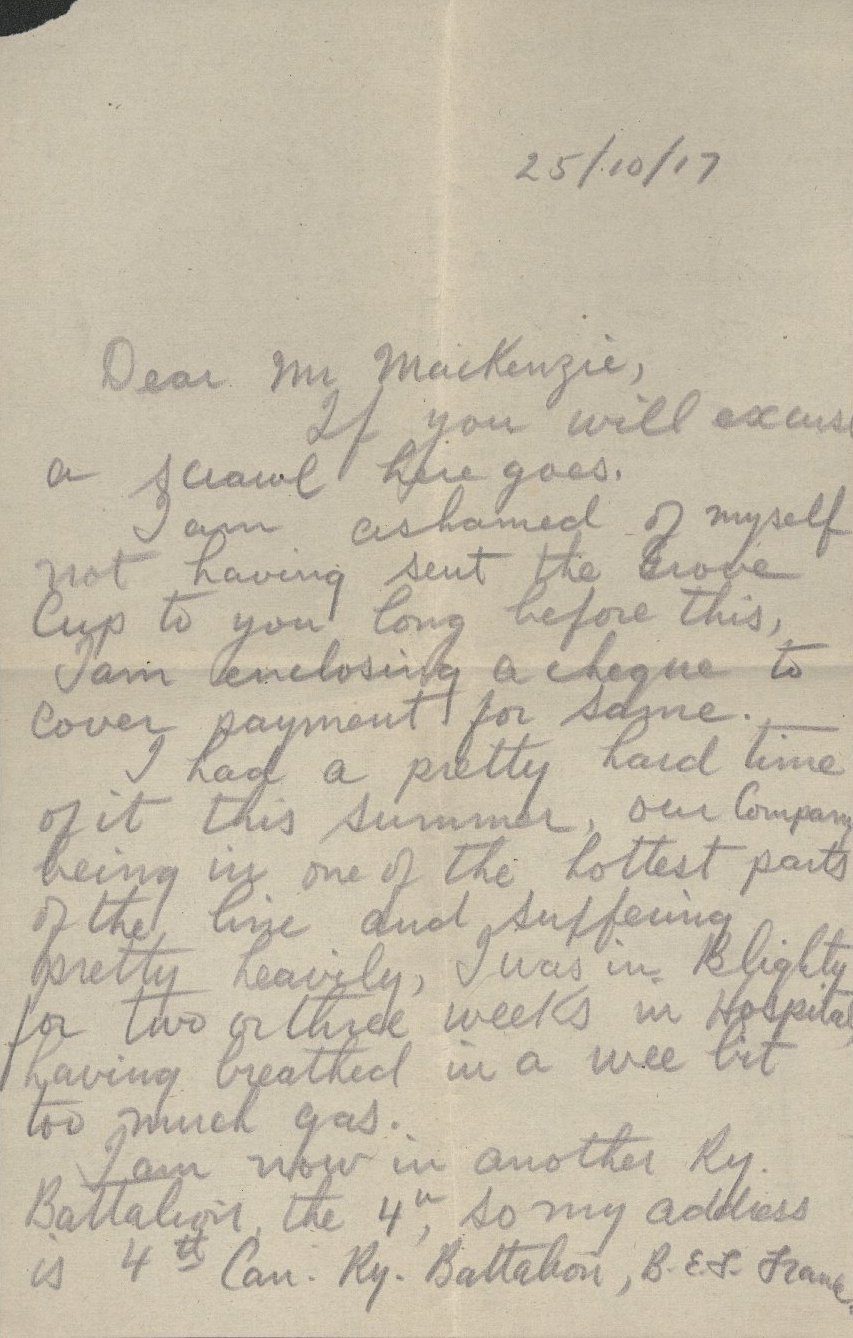 25/10/17
Dear Mr MacKenzie,
If you will excuse
a scrawl here goes.
I am ashamed of myself
not having sent the Grove
Cup to you long before this,
I am enclosing a cheque to
cover payment for same.
I had a pretty hard time
of it this summer, our Company
being in one of the hottest parts
of the line and suffering
pretty heavily, I was in Blighty
for two or three weeks in Hospital,
having breathed in a wee bit
too much gas.
I am now in another Ry.
Battalion, the 4th, so my address
is 4th Can. Ry. Battalion, B.E.F. France.